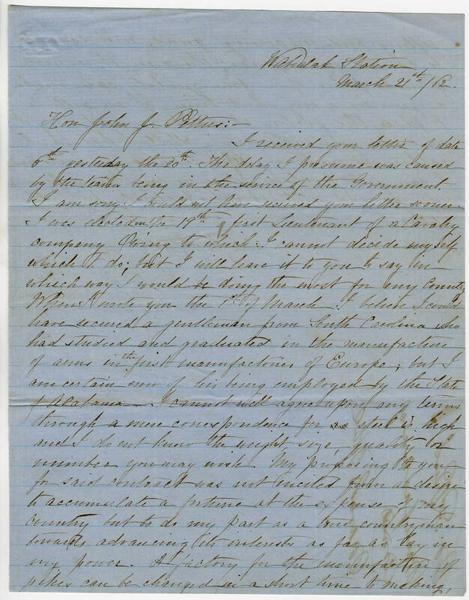 Station
March 21st /62
Hon John J. Pettus:-
I received your letter of date
6th yesterday the 20th. The delay I presume was caused
by the teams being in the service of the Government
I am sorry I could not have received your letter sooner
I was elected on the 19th first Lieutenant of a Cavalry
company Owing to which I cannot decide myself
which to do; but I will leave it to you to say in
which way I would be doing the most for my Country
When I wrote you the 1st of March I believe I could
have secured a gentleman from South Carolina who
had studied and graduated in the manufacture
of arms in the first manufactories of Europe, but I
am certain now of his being employed by the State
of Alabama. I cannot well agree upon any terms
through a mere correspondence for as steel is high
and I do not know the weight size, quality or
number you may wish. My proposing to you
for said contract was not incited from a design
to accumulate a fortune at the expense of my
country but to do my part as a true countryman
towards advancing its interests as far as lay in
my power. A factory for the manufacture of
pikes can be changed in a short time to making